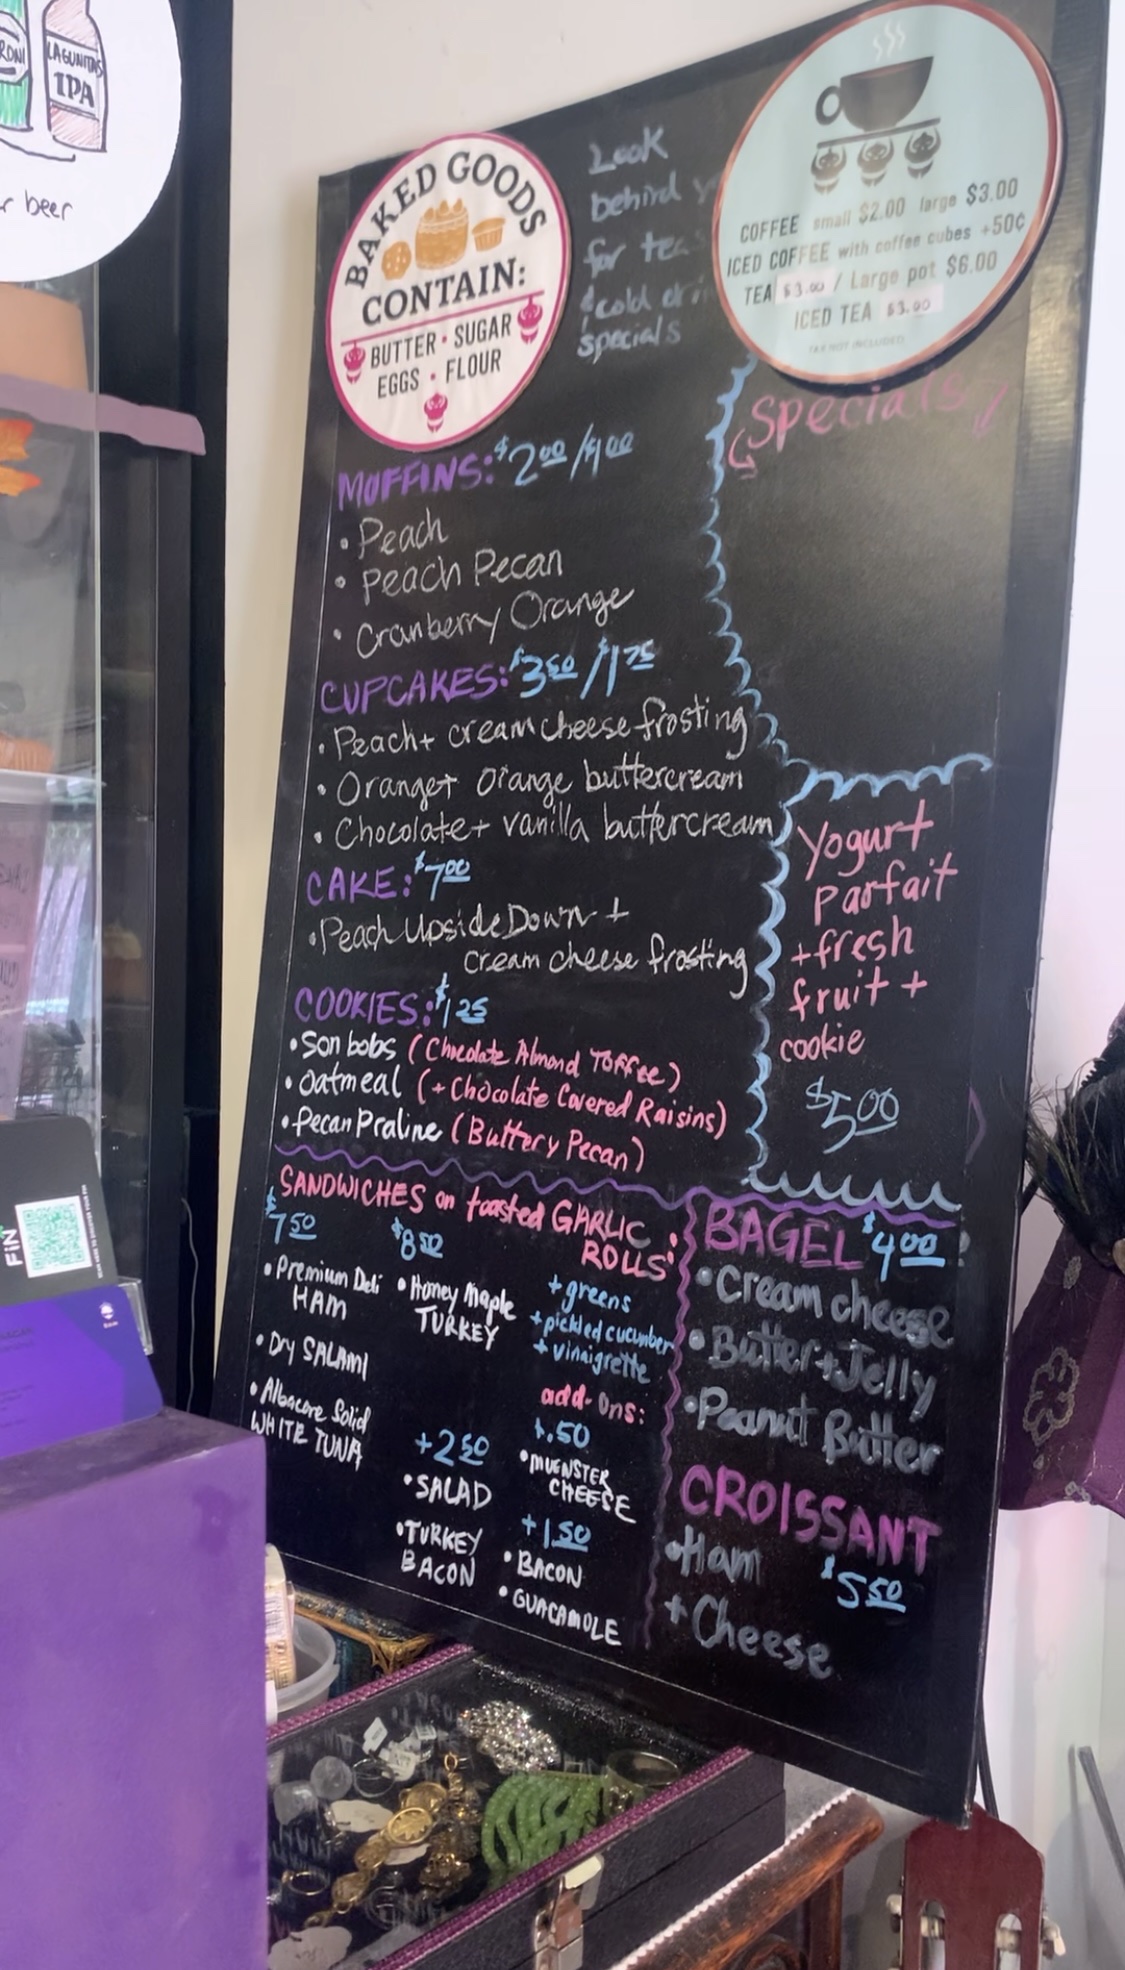 LAGUNITAS
IPA
beer
BAKED GOODS
CONTAIN:
BUTTER · SUGAR
EGGS · FLOUR
Look
behind
for tea
& cold
specials
COFFEE small $2.00 large $3.00
ICED COFFEE with coffee cubes +50¢
TEA $3.00 / Large pot $6.00
ICED TEA $3.00
TAX NOT INCLUDED
Specials
MUFFINS: $2.00/$1.00
• Peach
• Peach Pecan
• Cranberry Orange
CUPCAKES: $3.50/$1.75
• Peach + cream cheese frosting
• Orange + orange buttercream
• Chocolate + vanilla buttercream
CAKE: $7.00
• Peach Upside Down +
cream cheese frosting
COOKIES: $1.25
• Son bobs (Chocolate Almond Toffee)
• Oatmeal (+ Chocolate Covered Raisins)
• Pecan Praline (Buttery Pecan)
Yogurt
Parfait
+ fresh
fruit +
cookie
$5.00
SANDWICHES on toasted GARLIC
ROLLS:
$7.50
• Premium Deli
HAM
• Dry SALAMI
• Albacore Solid
WHITE TUNA
$8.50
• Honey Maple
TURKEY
+2.50
• SALAD
• TURKEY
BACON
+ greens
+ pickled cucumber
+ vinaigrette
add-ons:
+.50
• MUENSTER
CHEESE
+1.50
• BACON
• GUACAMOLE
BAGEL $4.00
• Cream cheese
• Butter + Jelly
• Peanut Butter
CROISSANT
• Ham $5.50
+ Cheese